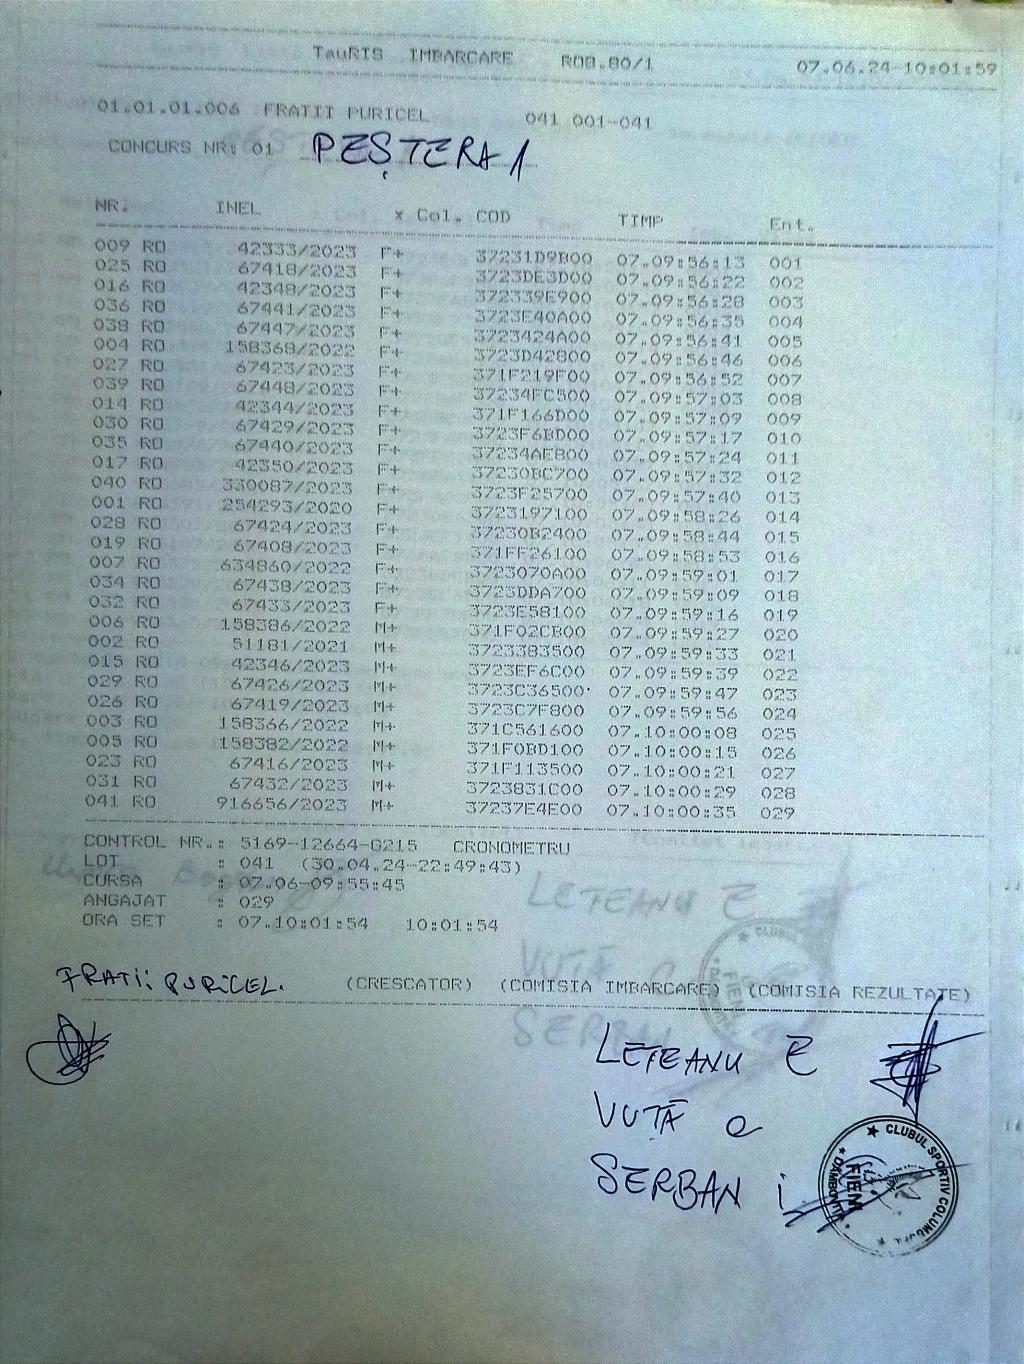 TauRIS IMBARCARE RO8.80/1 07.06.24-10:01:59
01.01.01.006 FRATII PURICEL 041 001-041
CONCURS NR: 01 PEȘTERA 1
NR. INEL x Col. COD TIMP Ent.
009 RO 42333/2023 F+ 37231D9B00 07.09:56:13 001
025 RO 67418/2023 F+ 3723DE3D00 07.09:56:22 002
016 RO 42348/2023 F+ 372339E900 07.09:56:28 003
036 RO 67441/2023 F+ 3723E40A00 07.09:56:35 004
038 RO 67447/2023 F+ 3723424A00 07.09:56:41 005
004 RO 158368/2022 F+ 3723D42800 07.09:56:46 006
027 RO 67423/2023 F+ 371F219F00 07.09:56:52 007
039 RO 67448/2023 F+ 37234FC500 07.09:57:03 008
014 RO 42344/2023 F+ 371F166D00 07.09:57:09 009
030 RO 67429/2023 F+ 3723F6BD00 07.09:57:17 010
035 RO 67440/2023 F+ 37234AE800 07.09:57:24 011
017 RO 42350/2023 F+ 37230BC700 07.09:57:32 012
040 RO 330087/2023 F+ 3723F25700 07.09:57:40 013
001 RO 254293/2020 F+ 3723197100 07.09:58:26 014
028 RO 67424/2023 F+ 37230B2400 07.09:58:44 015
019 RO 67408/2023 F+ 371FF26100 07.09:58:53 016
007 RO 634860/2022 F+ 3723070A00 07.09:59:01 017
034 RO 67438/2023 F+ 3723DDA700 07.09:59:09 018
032 RO 67433/2023 F+ 3723E58100 07.09:59:16 019
006 RO 158386/2022 M+ 371F02CB00 07.09:59:27 020
002 RO 51181/2021 M+ 3723383500 07.09:59:33 021
015 RO 42346/2023 M+ 3723EF6C00 07.09:59:39 022
029 RO 67426/2023 M+ 3723C36500 07.09:59:47 023
026 RO 67419/2023 M+ 3723C7F800 07.09:59:56 024
003 RO 158366/2022 M+ 371C561600 07.10:00:08 025
005 RO 158382/2022 M+ 371F0BD100 07.10:00:15 026
023 RO 67416/2023 M+ 371F113500 07.10:00:21 027
031 RO 67432/2023 M+ 3723831C00 07.10:00:29 028
041 RO 916656/2023 M+ 37237E4E00 07.10:00:35 029
CONTROL NR.: 5169-12664-G215 CRONOMETRU
LOT : 041 (30.04.24-22:49:43)
CURSA : 07.06-09:55:45
ANGAJAT : 029
ORA SET : 07.10:01:54 10:01:54
FRATII PURICEL. (CRESCATOR) (COMISIA IMBARCARE) (COMISIA REZULTATE)
LETEANU E
VUTĂ C
SERBAN i.
CLUBUL SPORTIV COLUMBOFIL
FIENI
DÂMBOVIȚA